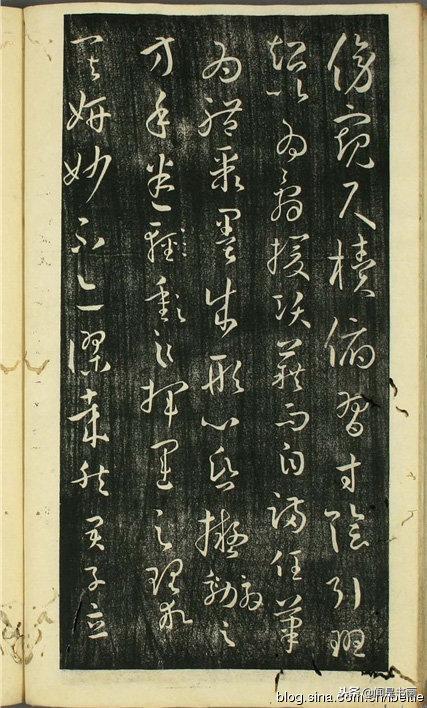 傍窺尺牘俯習寸陰引班
超以為辭援項籍而自滿任筆
為體聚墨成形心昏擬効之
方手迷輕重之揮運之理求
其妍妙不亦謬哉然君子立